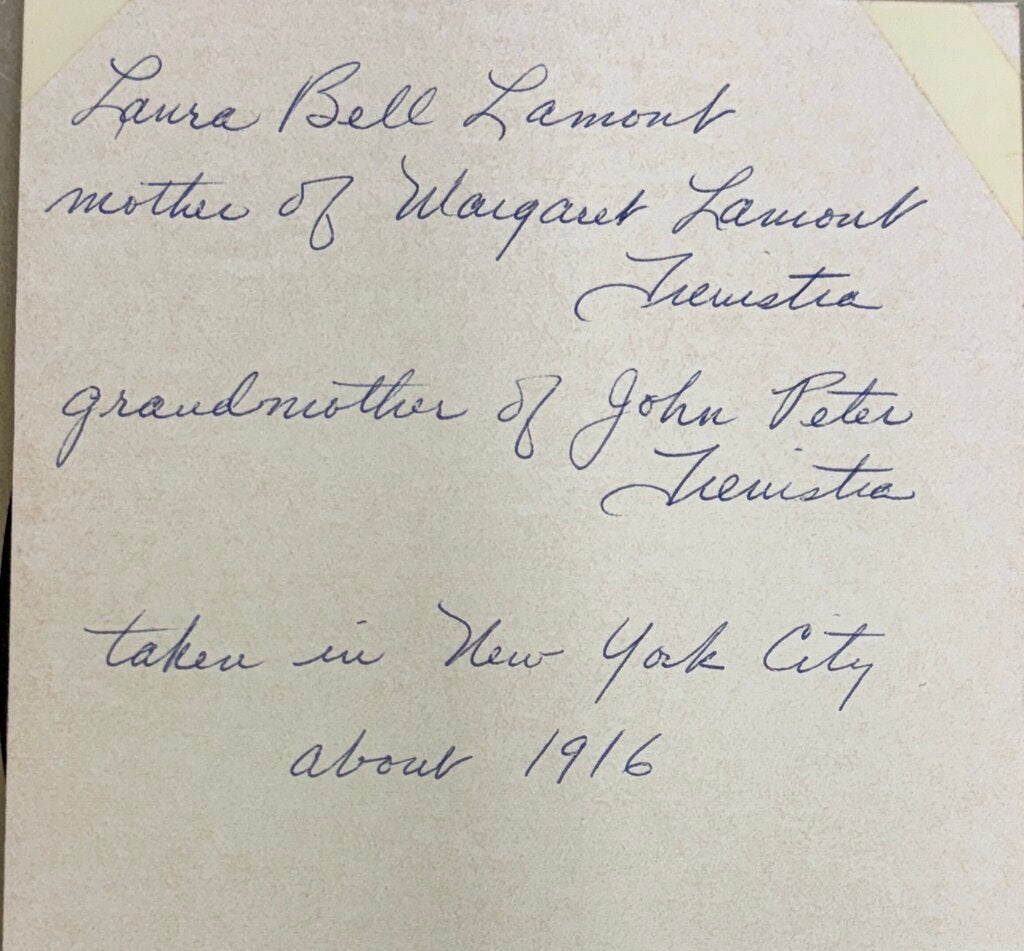 Laura Bell Lamont
mother of Margaret Lamont
Frenistra
grandmother of John Peter
Frenistra
taken in New York City
about 1916